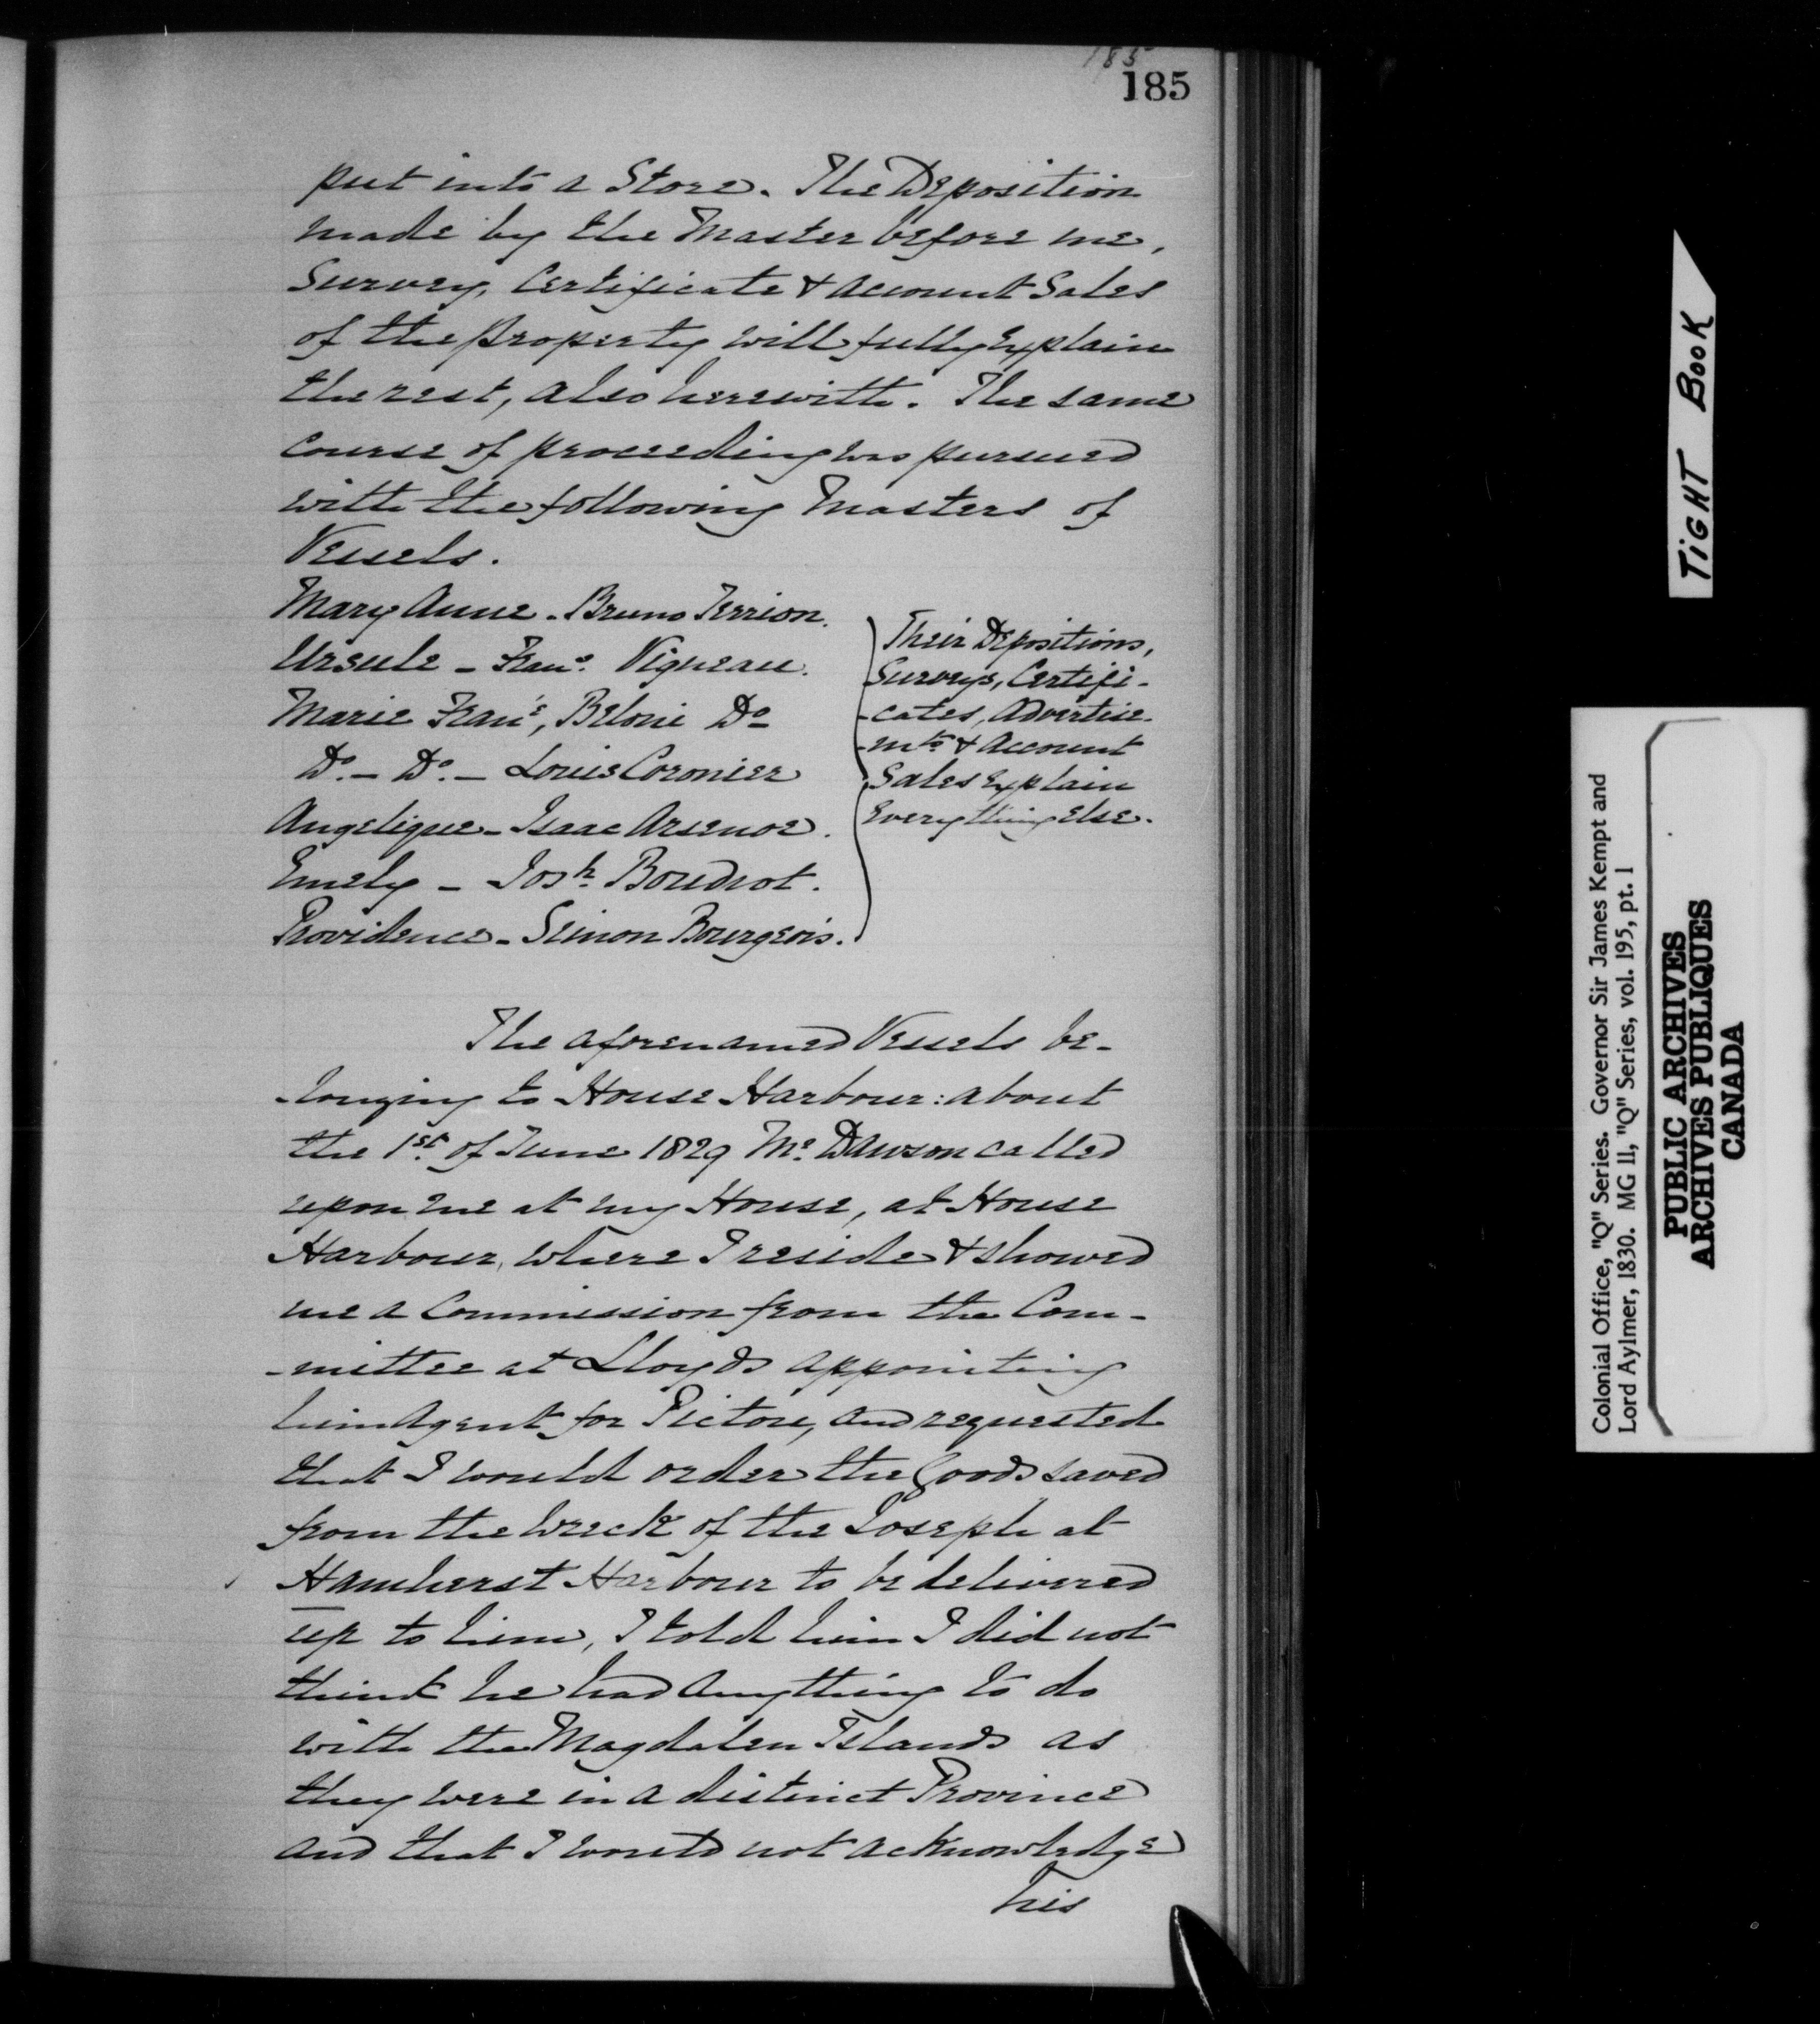 185
185
put into a Store. The Deposition
made by the Master before me,
Survey, Certificate & Account Sales
of the property will fully Explain
the rest, also herewith. The same
course of proceeding was pursued
with the following Masters of
Vessels.
Mary Anne - Bruno Terrion.
Ursule - Franc. Vigneau.
Marie Franc, Beloni Do
Do. - Do. - Louis Coronier
Angelique - Isaac Arsenoe.
Emely - Josh. Boudrot.
Providence - Simon Bourgeois.
Their Depositions,
Surveys, Certifi-
-cates, Advertise-
-mts. & Account
Sales Explain
Everything Else.
The aforenamed Vessels be-
-longing to House Harbour: about
the 1st. of June 1829 Mr. Dawson called
upon me at my House, at House
Harbour, where I reside & showed
me a Commission from the Com-
-mittee at Lloyds appointing
him Agent for Pictou, and requested
that I would order the Goods saved
from the Wreck of the "Joseph" at
Hamherst Harbour to be delivered
up to him, I told him I did not
think he had anything to do
with the Magdalen Islands as
they were in a distinct Province
and that I would not acknowledge
his
TIGHT BOOK
Colonial Office, "Q" Series. Governor Sir James Kempt and
Lord Aylmer, 1830. MG 11, "Q" Series, vol. 195, pt. 1
PUBLIC ARCHIVES
ARCHIVES PUBLIQUES
CANADA